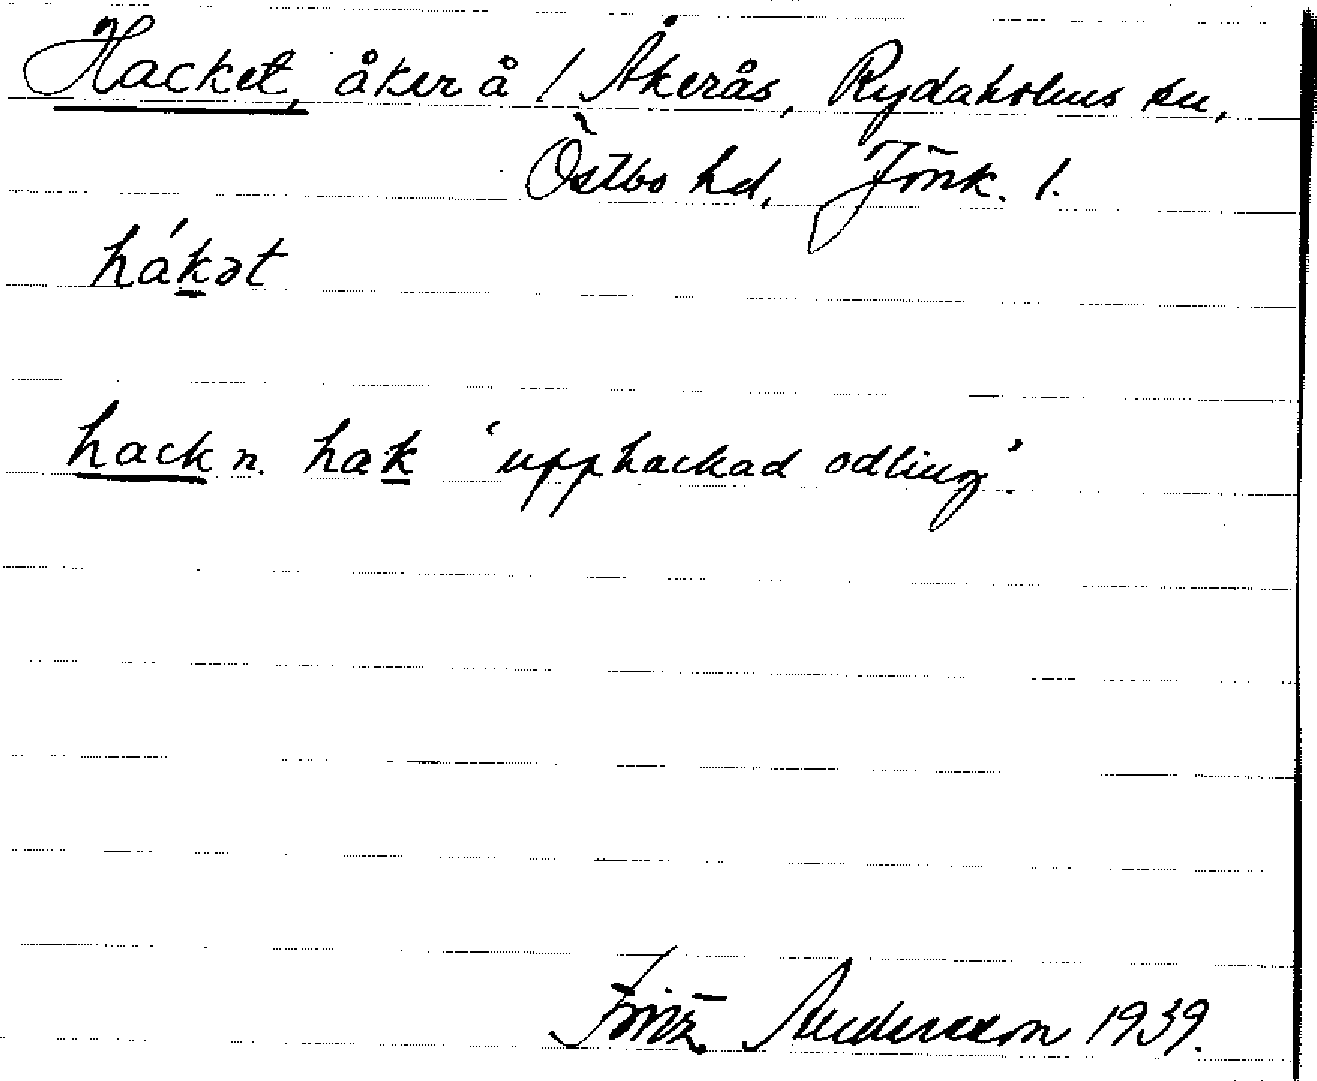 Hacket, åker å / Åkerås, Rydaholms sn,
Östbo hd, Jönk. l.
hákət
hack n. hak 'upphackad odling'.
Fritz Andersson 1939.